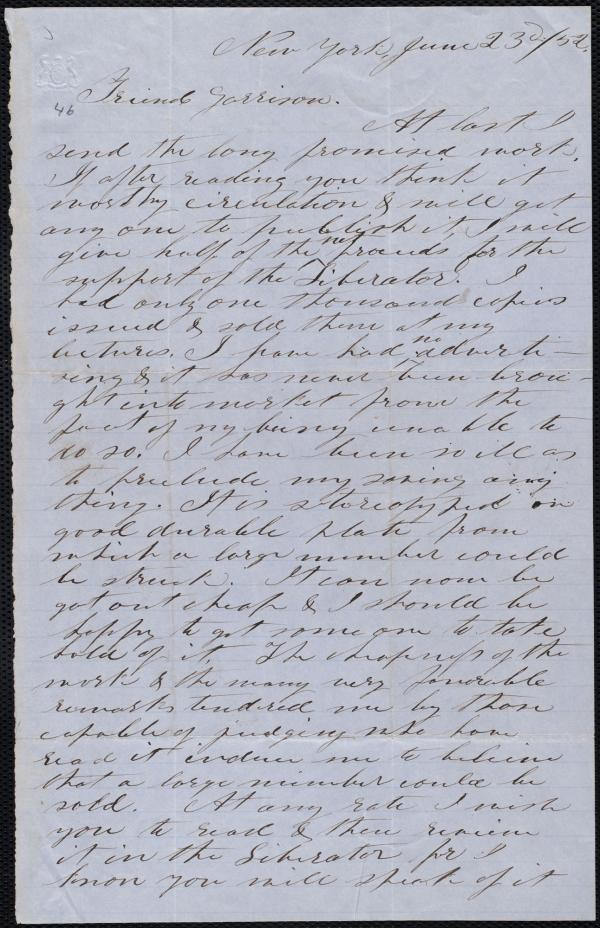 New York, June 23d/52.
46
Friend Garrison.
At last I
send the long promised work.
If after reading you think it
worthy circulation & will get
any one to publish it, I will
give half of the net proceeds for the
support of the Liberator. I
had only one thousand copies
issued & sold them at my
lectures. I have had no adverti-
sing & it has never been brou-
ght into market from the
fact of my being unable to
do so. I have been so ill as
to preclude my saving any
thing. It is stereotyped on
good durable plate from
which a large number could
be struck. It can now be
got out cheap & I should be
happy to get some one to take
hold of it. The cheapness of the
work & the many very favorable
remarks tendered me by those
capable of judging who have
read it induce me to believe
that a large number could be
sold. At any rate I wish
you to read & then review
it in the Liberator for I
know you will speak of it